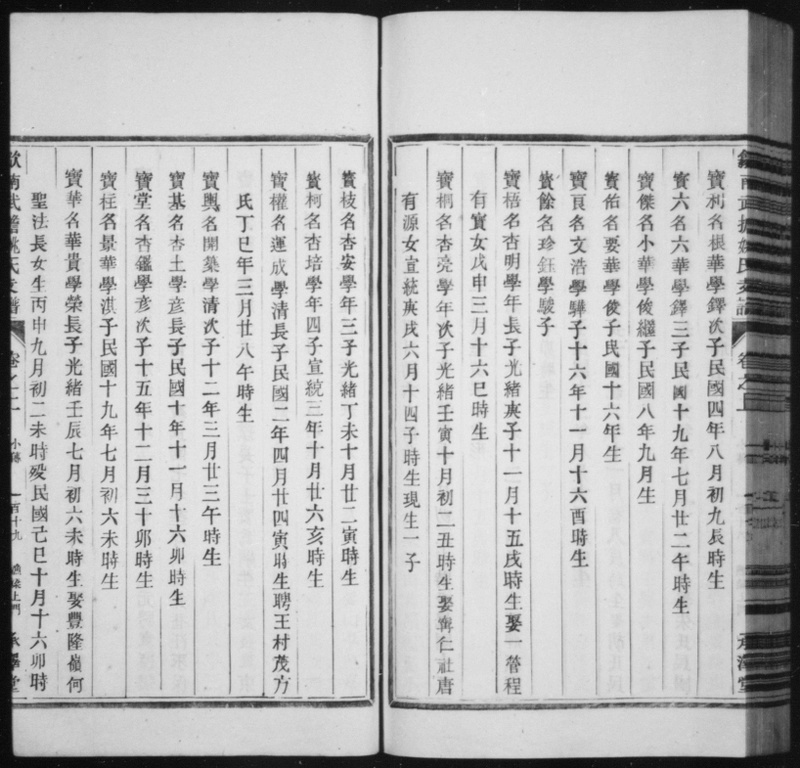 寶利名根華學鐸次子民國四年八月初九辰時生
寶六名六華學鐸三子民國十九年七月廿二午時生
寶傑名小華學俊繼子民國八年九月生
寶佁名要華學俊子民國十六年生
寶頁名文浩學驊子十六年十一月十六酉時生
寶餘名珍鈺學駿子
寶梧名杏明學年長子光緒庚子十一月十五戌時生娶一管程
有寶女戊申三月十六巳時生
寶桐名杏亮學年次子光緒壬寅十月初二丑時生娶 仁社唐
有源女宣統庚戌六月十四子時生現生一子
寶枝名杏安學年三子光緒丁未十月廿二寅時生
寶柯名杏培學年四子宣統三年十月廿六亥時生
寶權名運成學清長子民國二年四月廿四寅時生聘王村茂方
氏丁巳年三月廿八午時生
寶輿名開榘學清次子十二年三月廿三午時生
寶基名杏土學彥長子民國十年十一月十六卯時生
寶堂名杏鑑學彥次子十五年十二月三十卯時生
寶柱名景華學淇子民國十九年七月初六未時生
寶華名華貴學榮長子光緒壬辰七月初六未時生娶豐隆嶺何
聖法長女生丙申九月初二未時歿民國己巳十月十六卯時
小傳
一百十九
承澤堂